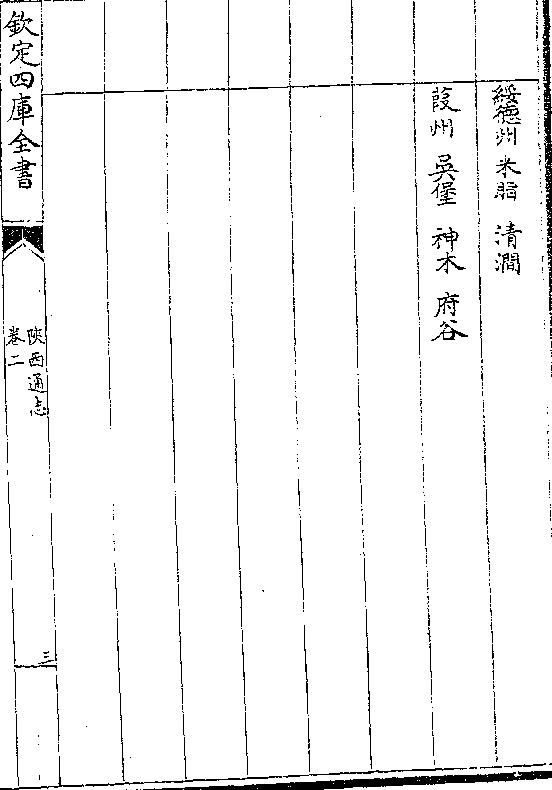 綏德州 米脂 清澗
葭州 吳堡 神木 府谷
欽定四庫全書
陝西通志
卷二
三